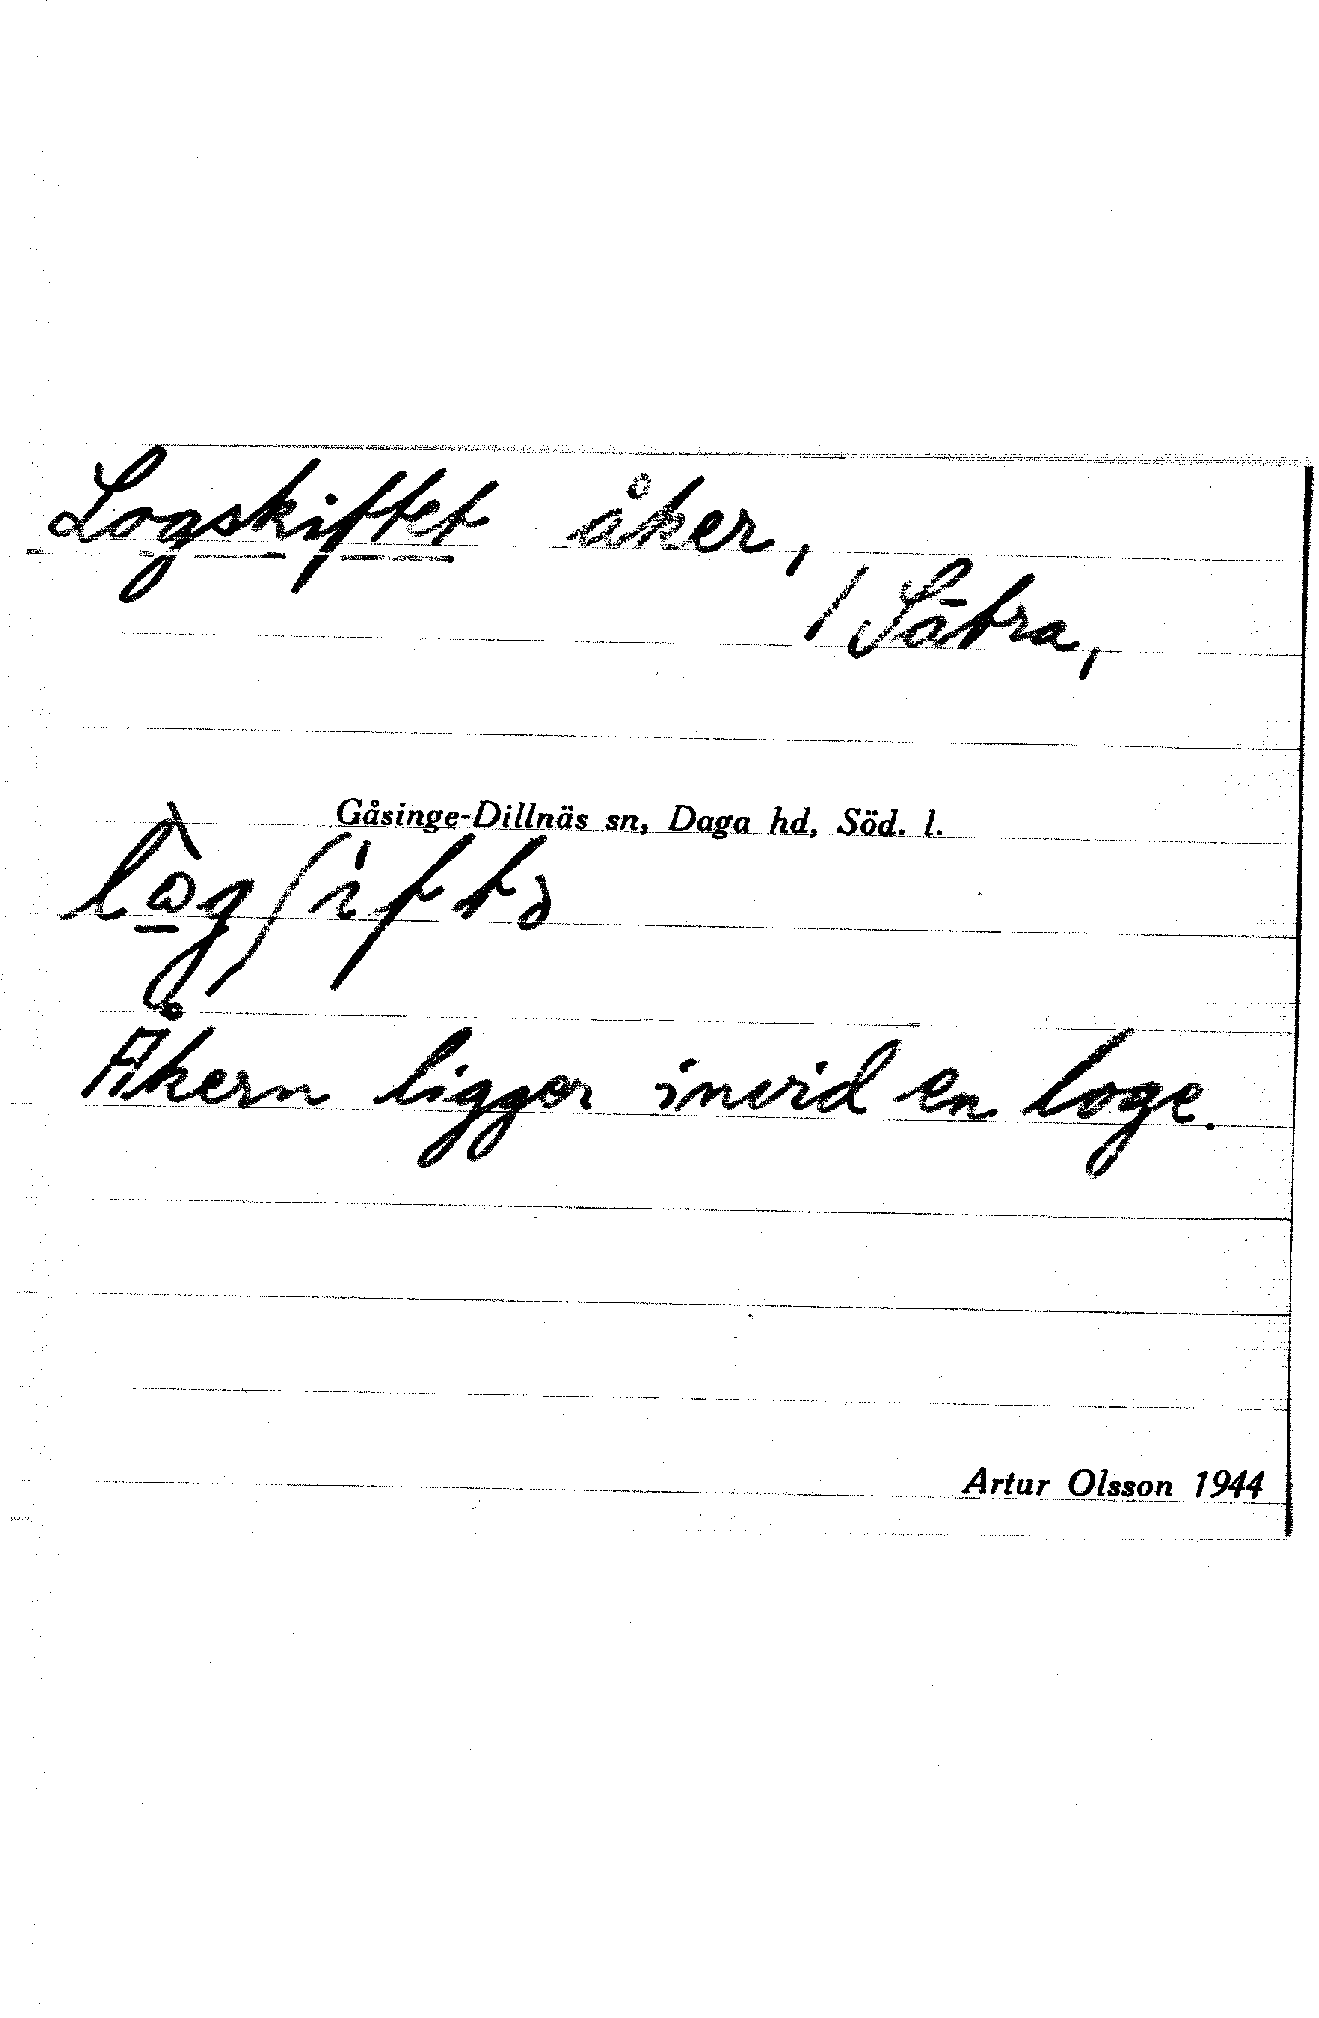 Logskiftet åker,
/ Sätra,
Gåsinge-Dillnäs sn, Daga hd, Söd. l.
Åkern ligger invid en loge.
Artur Olsson 1944